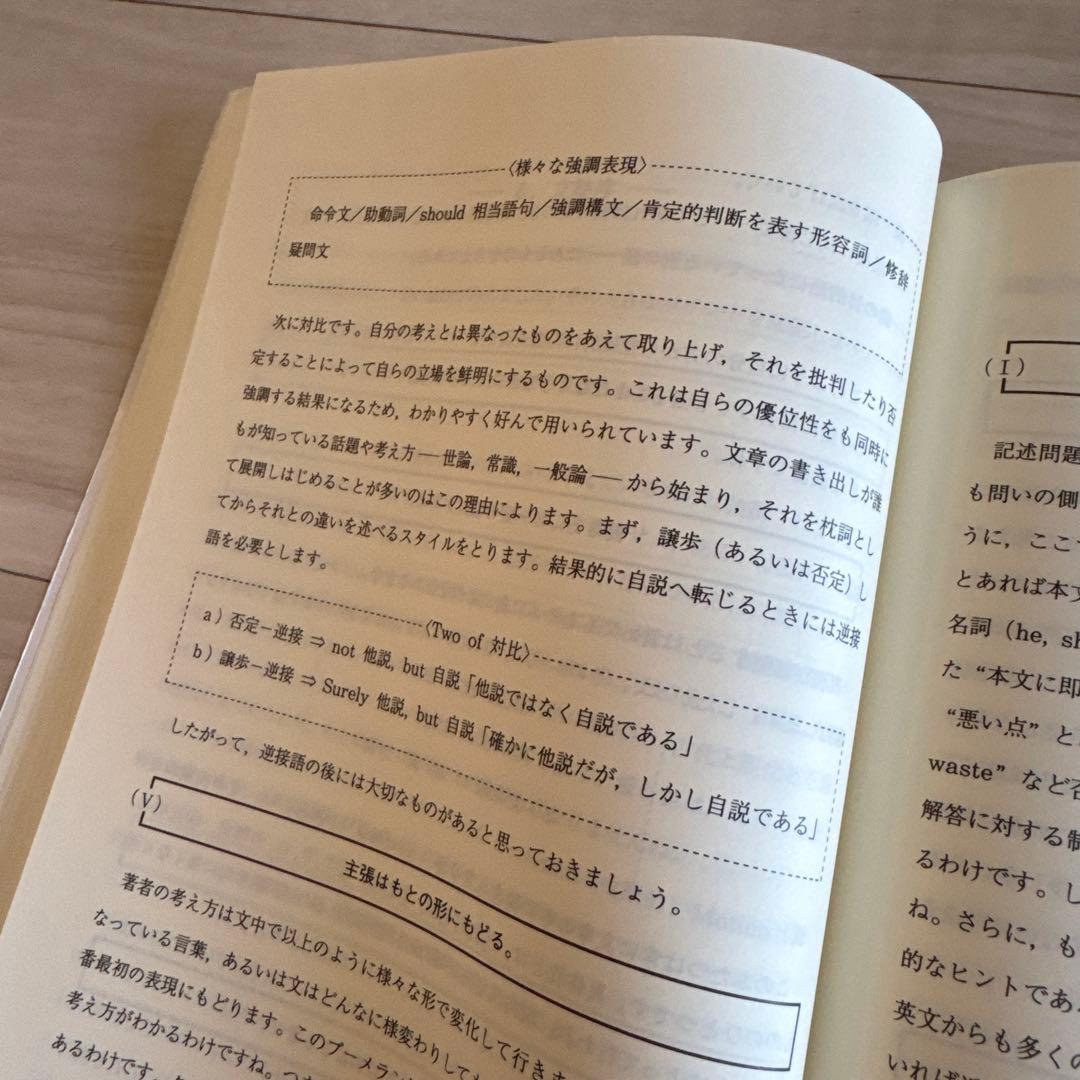 〈様々な強調表現〉
命令文／助動詞／should 相当語句／強調構文／肯定的判断を表す形容詞／修辞
疑問文
次に対比です。自分の考えとは異なったものをあえて取り上げ，それを批判したり否
定することによって自らの立場を鮮明にするものです。これは自らの優位性をも同時に
強調する結果になるため，わかりやすく好んで用いられています。文章の書き出しが誰
もが知っている話題や考え方――世論，常識，一般論――から始まり，それを枕詞とし
て展開しはじめることが多いのはこの理由によります。まず，譲歩（あるいは否定）し
てからそれとの違いを述べるスタイルをとります。結果的に自説へ転じるときには逆接
語を必要とします。
〈Two of 対比〉
a）否定－逆接 ⇒ not 他説, but 自説「他説ではなく自説である」
b）譲歩－逆接 ⇒ Surely 他説, but 自説「確かに他説だが，しかし自説である」
したがって，逆接語の後には大切なものがあると思っておきましょう。
（V）
主張はもとの形にもどる。
著者の考え方は文中で以上のように様々な形で変化して行きま
なっている言葉，あるいは文はどんなに様変わりして
番最初の表現にもどります。このブーメラン
考え方がわかるわけですね。つ
あるわけです。
（I）
記述問題
も問いの側
うに，ここ
とあれば本文
名詞（he, sh
た“本文に即
“悪い点”と
waste”など否
解答に対する制
るわけです。し
ね。さらに，も
的なヒントであ
英文からも多くの
いれば